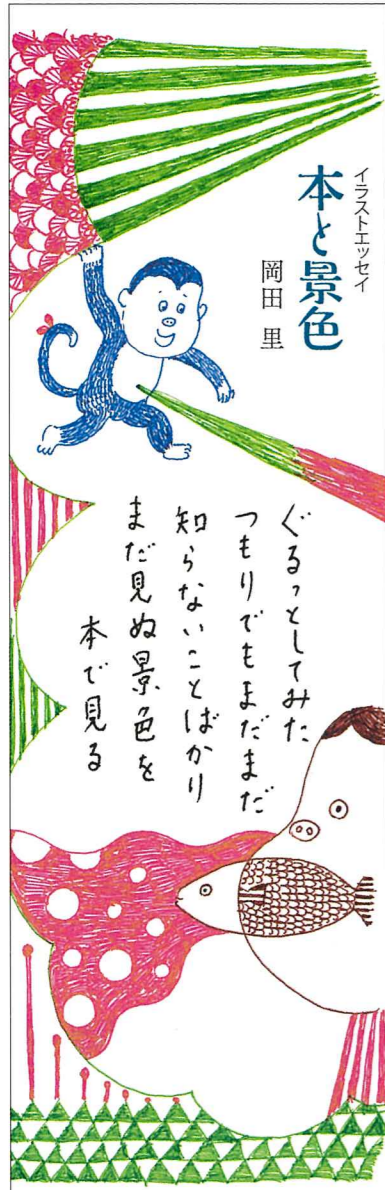 イラストエッセイ
本と景色
岡田 里
ぐるっとしてみた
つもりでもまだまだ
知らないことばかり
まだ見ぬ景色を
本で見る